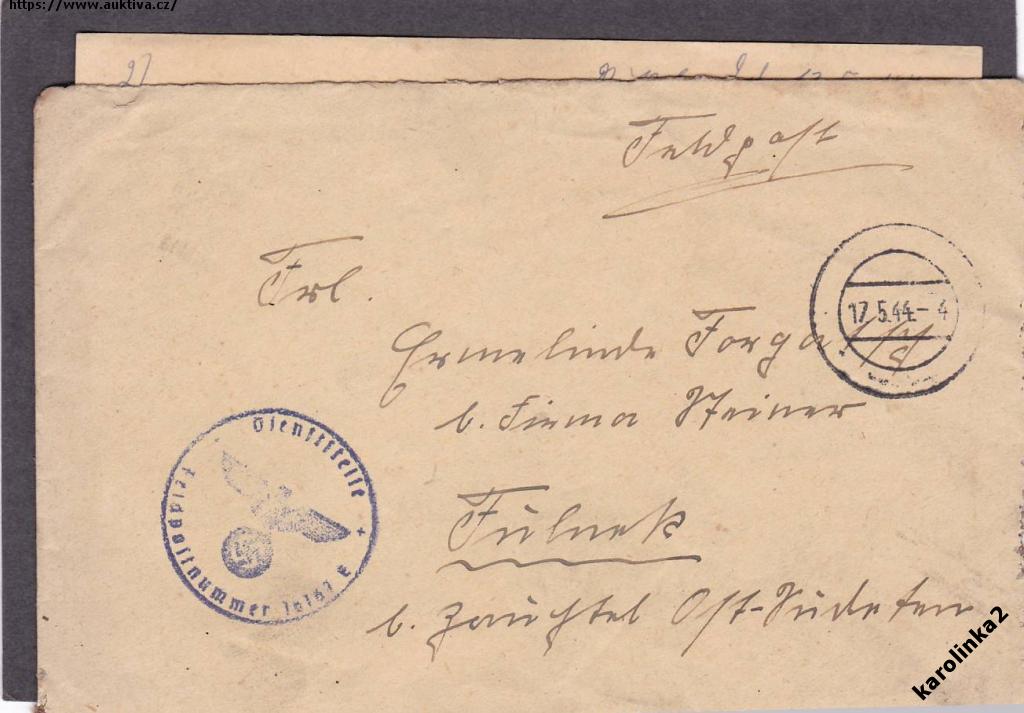 https://www.auktiva.cz/
2)
Feldpost
Frl.
17.5.44.-4
Ermelinde
b. Firma Steiner
Dienststelle
Feldpostnummer
Fulnek
b. Zauchtel Ost-Sudeten
karolinka2